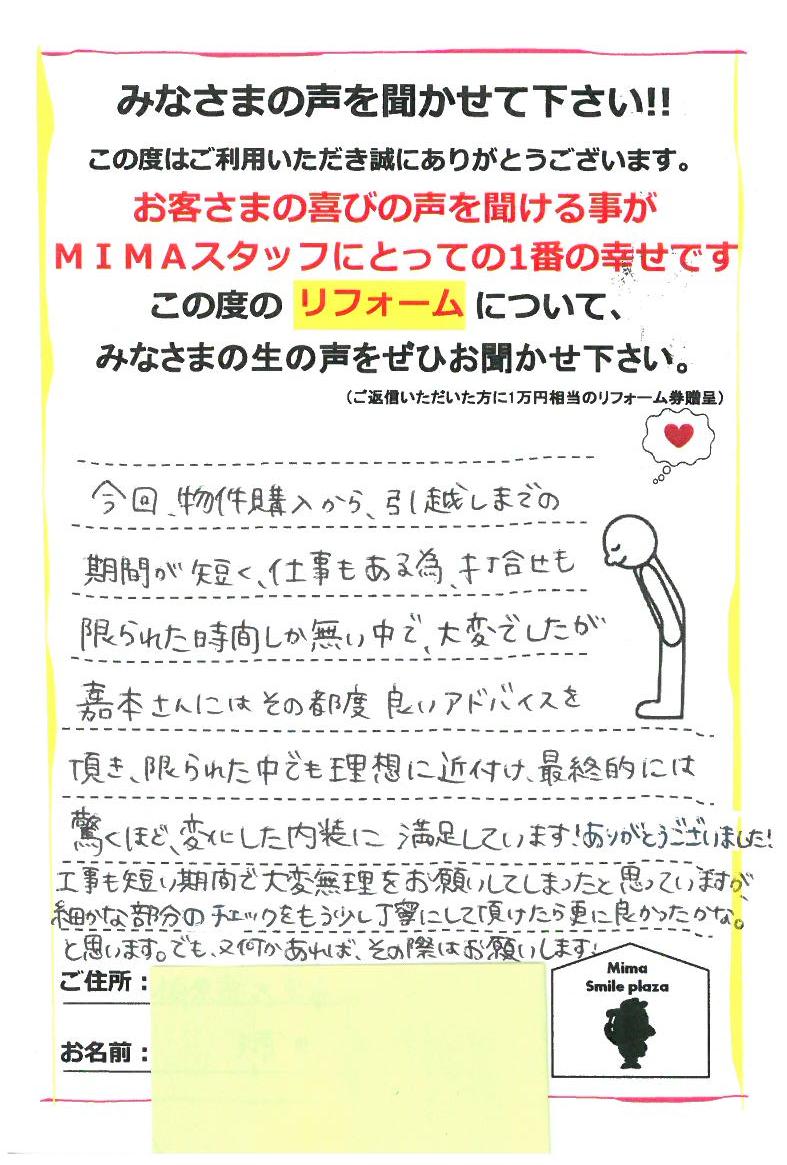 みなさまの声を聞かせて下さい!!
この度はご利用いただき誠にありがとうございます。
お客さまの喜びの声を聞ける事が
ＭＩＭＡスタッフにとっての1番の幸せです
この度の リフォーム について、
みなさまの生の声をぜひお聞かせ下さい。
（ご返信いただいた方に1万円相当のリフォーム券贈呈）
今回、物件購入から、引越しまでの
期間が短く、仕事もある為、打合せも
限られた時間しか無い中で、大変でしたが
嘉本さんにはその都度良いアドバイスを
頂き、限られた中でも理想に近付け、最終的には
驚くほど、変化した内装に満足しています!ありがとうございました!
工事も短い期間で大変無理をお願いしてしまったと思っていますが、
細かな部分のチェックをもう少し丁寧にして頂けたら更に良かったかな。
と思います。でも、又何かあれば、その際はお願いします!
ご住所：
お名前：
Mima
Smile plaza